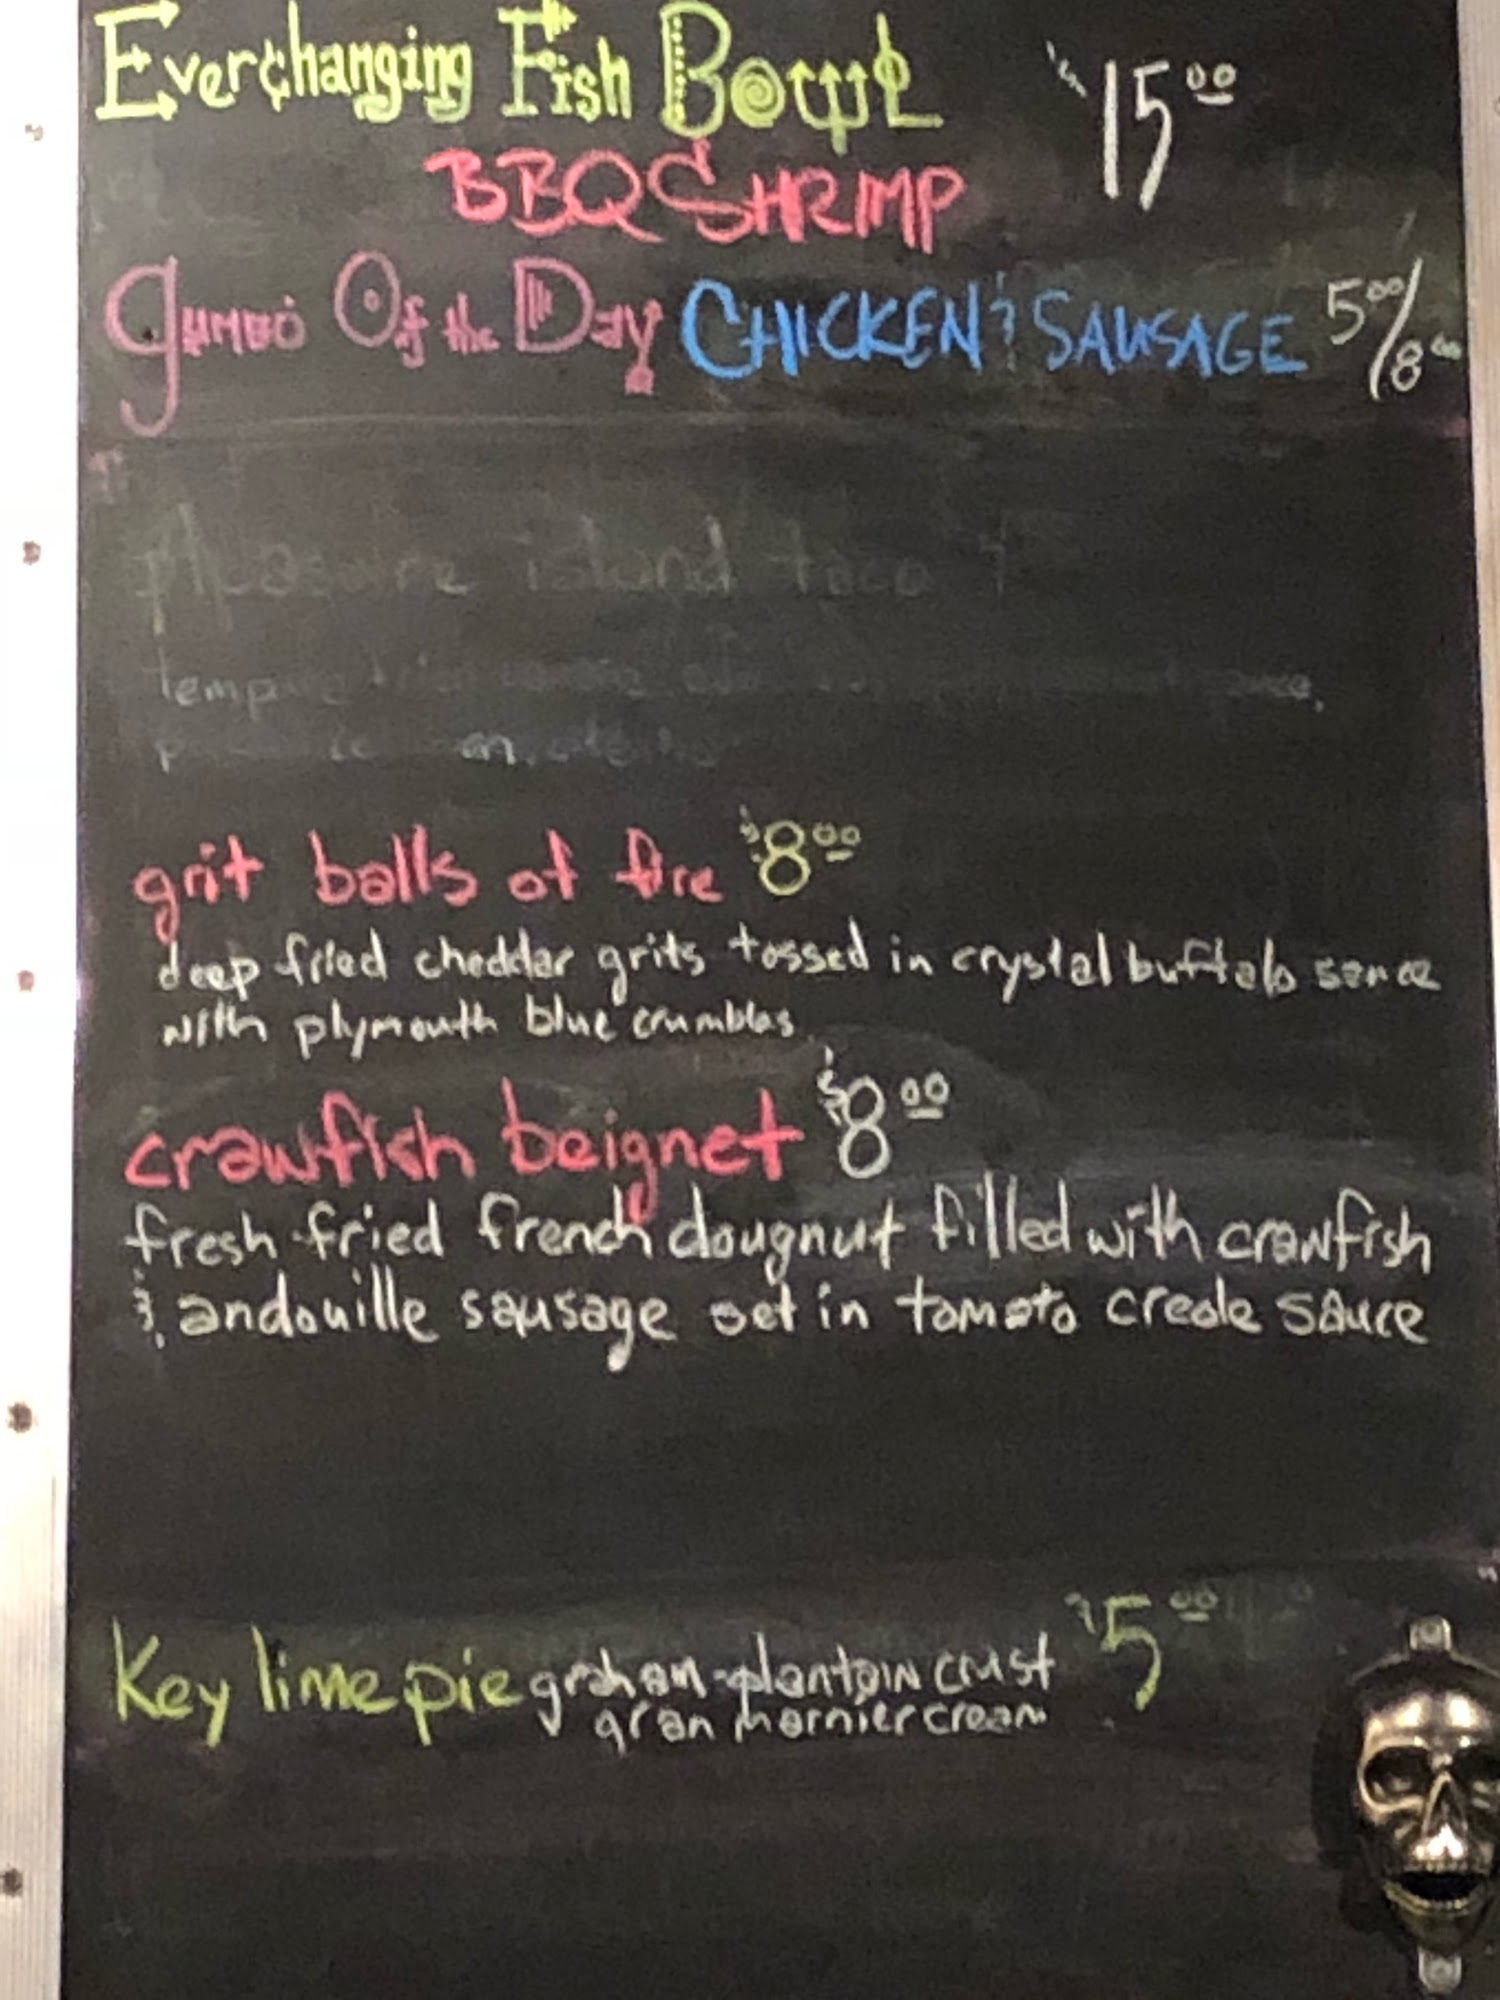 Everchanging Fish Bowl $15.00
BBQ SHRIMP
Gumbo Of the Day CHICKEN & SAUSAGE 5.00/8.00
Pleasure island taco
grit balls of fire $8.00
deep fried cheddar grits tossed in crystal buffalo sauce
with plymouth blue crumbles
crawfish beignet $8.00
fresh fried french dougnut filled with crawfish
& andouille sausage set in tomato creole sauce
Key lime pie grahan-plantain crust $5.00
gran marnier cream